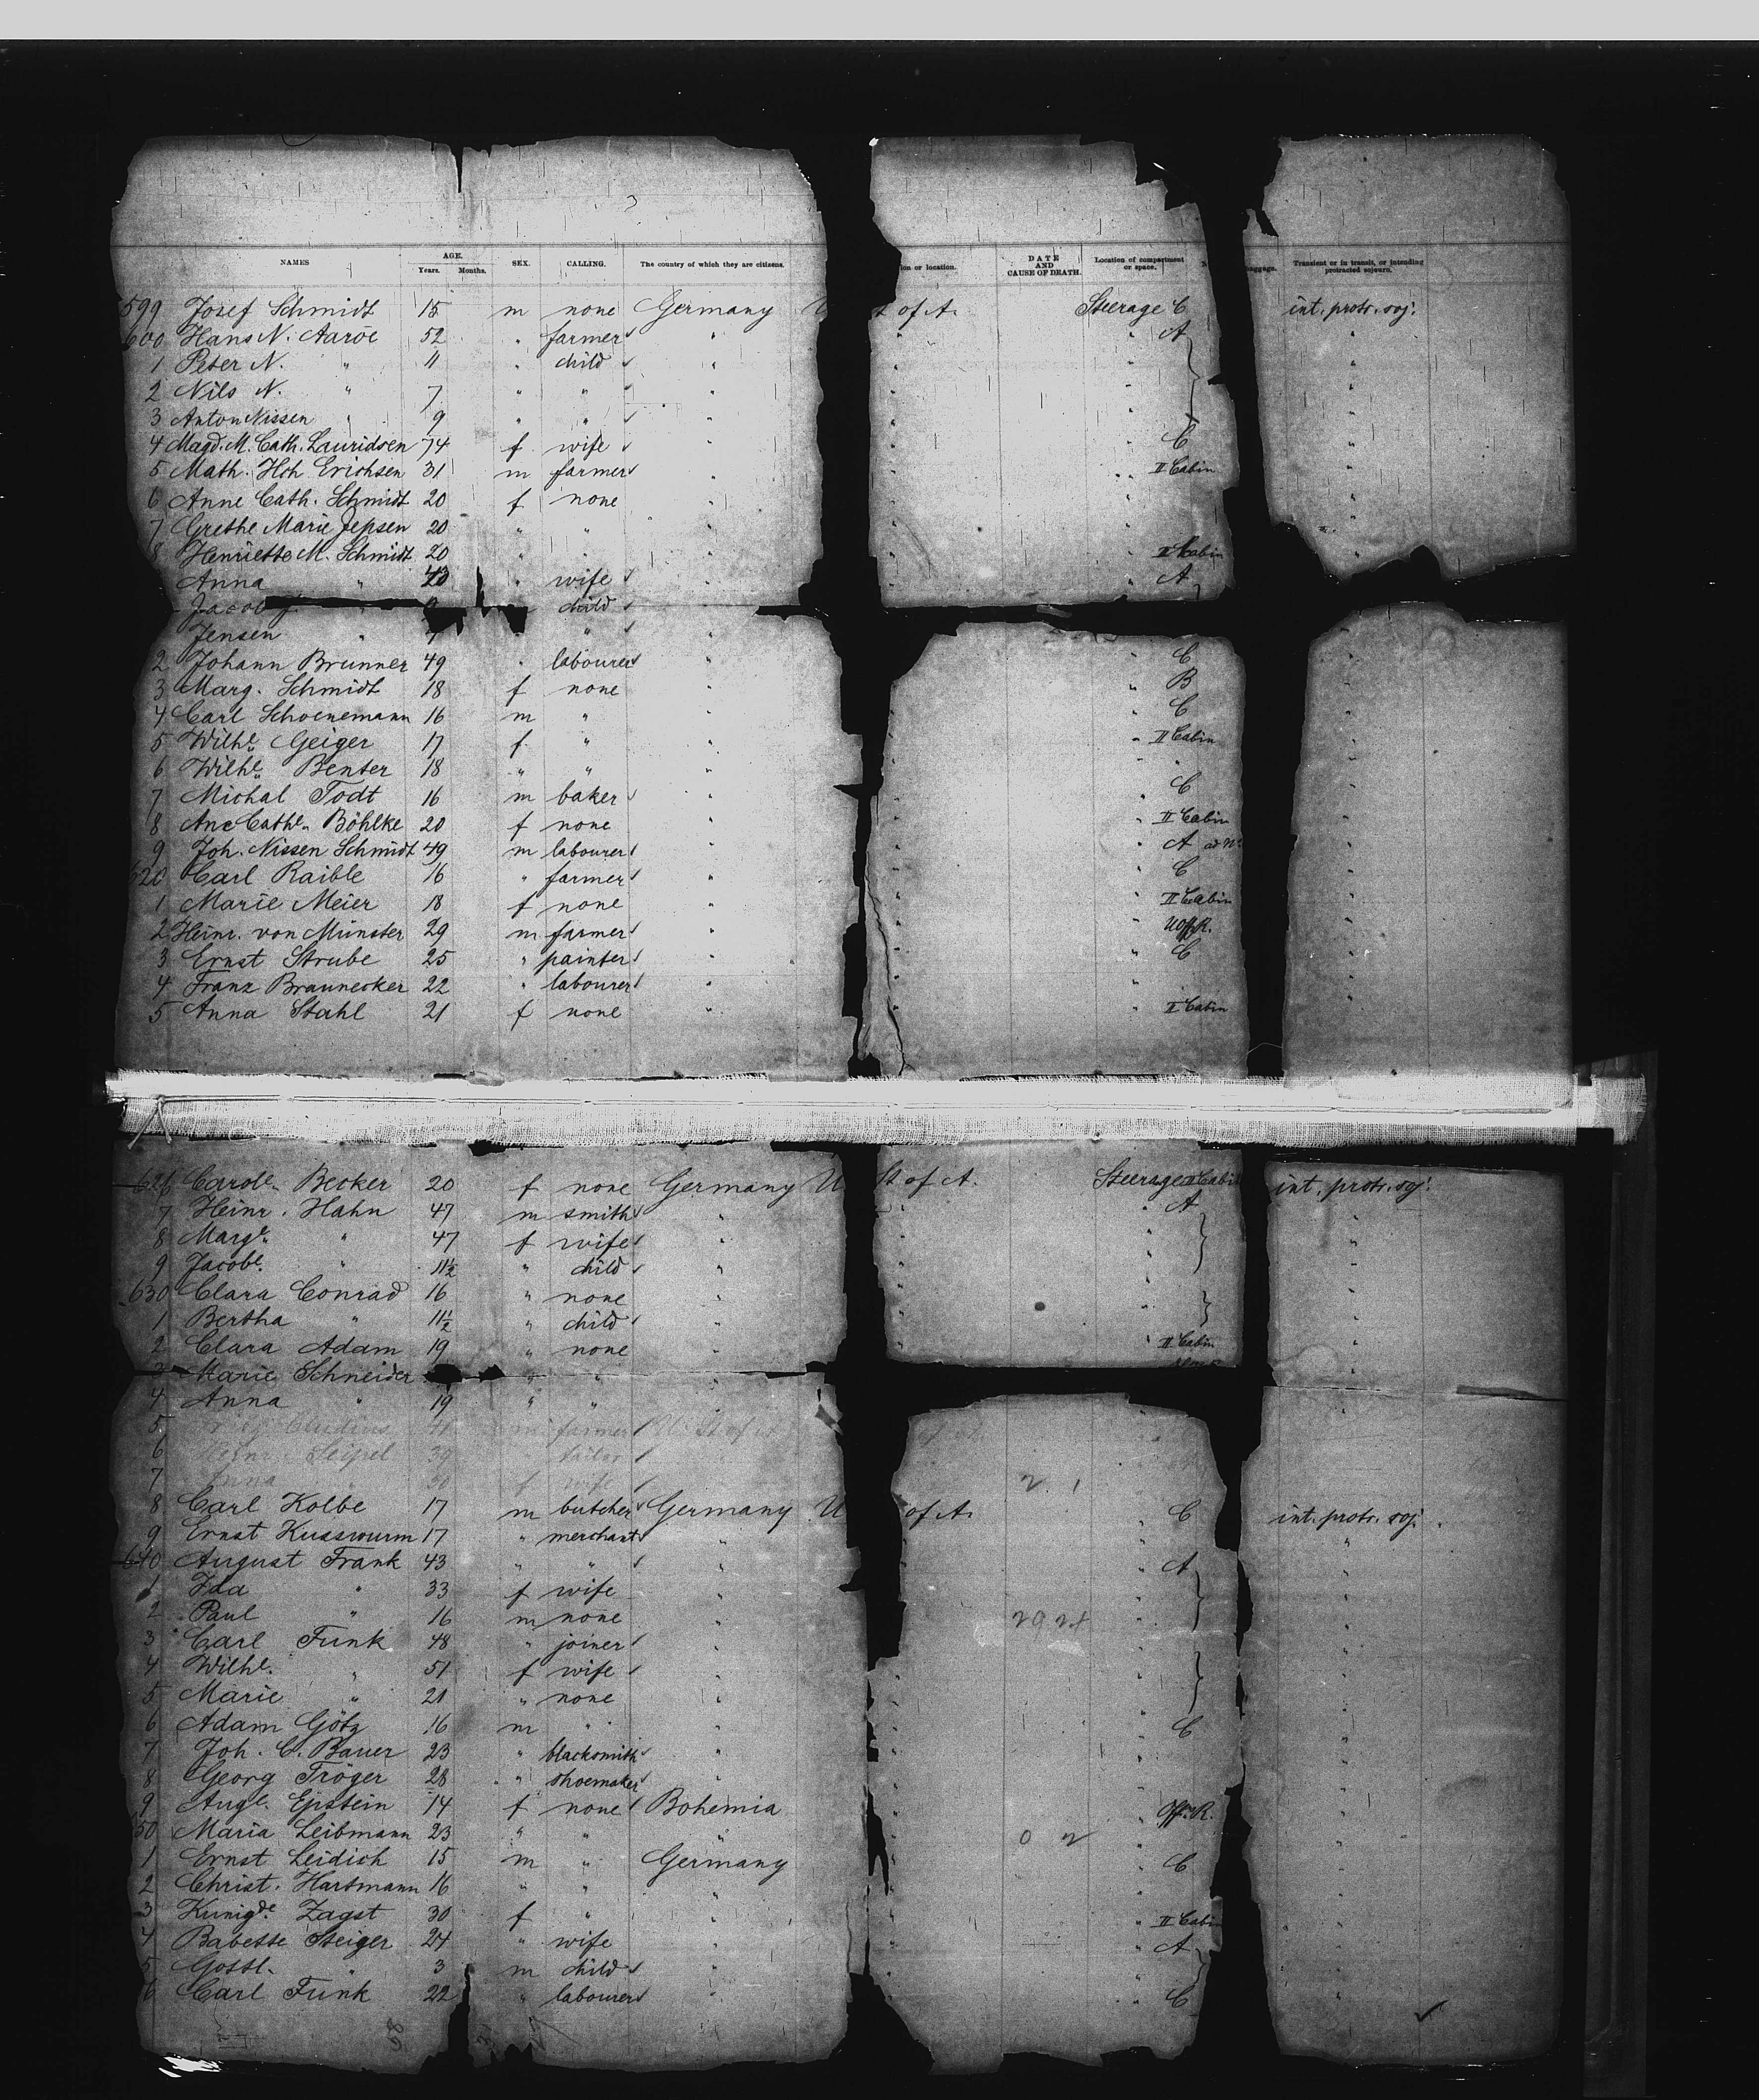 NAMES AGE. Years. Months. SEX. CALLING. The country of which they are citizens. ion or location. DATE AND CAUSE OF DEATH. Location of compartment or space. baggage. Transient or in transit, or intending protracted sojourn.
599 Josef Schmidt 15 m none Germany U t of A. Steerage C int. protr. soj.
600 Hans N. Aaröe 52 " farmer " " " A "
1 Peter N. " 11 " child " " " "
2 Nils N. " 7 " " " " " "
3 Anton Nissen " 9 " " " " " "
4 Magd. M. Cath. Lauridsen 74 f wife " " " C "
5 Math. Hch Erichsen 31 m farmer " " " II Cabin "
6 Anne Cath. Schmidt 20 f none " " " "
7 Grethe Marie Jepsen 20 " " " " " "
8 Henriette M. Schmidt 20 " " " " " II Cabin
Anna " " wife " " " A
Jacob " child
Jensen " 7 " " " "
2 Johann Brunner 49 " labourer " " C "
3 Marg. Schmidt 18 f none " " B "
4 Carl Schoenemann 16 m " " " C "
5 Wilhe. Geiger 17 f " " " II Cabin "
6 Wilhe. Benter 18 " " " " " "
7 Michal Todt 16 m baker " " C "
8 Ane Cathe. Böhlke 20 f none " " II Cabin "
9 Joh. Nissen Schmidt 49 m labourer " " A "
620 Carl Raible 16 " farmer " " C "
1 Marie Meier 18 f none " " II Cabin "
2 Heinr. von Münster 29 m farmer " " UOff.R. "
3 Ernst Strube 25 " painter " " C "
4 Franz Braunecker 22 " labourer " " "
5 Anna Stahl 21 f none " " II Cabin "
626 Carole. Becker 20 f none Germany U. St of A. Steerage II Cabin int. protr. soj.
7 Heinr. Hahn 47 m smith " " " A "
8 Marge. " 47 f wife " " " "
9 Jacobe. " 11½ " child " " " "
630 Clara Conrad 16 " none " " " "
1 Bertha " 11½ " child " " " "
2 Clara Adam 19 " none " " " II Cabin "
3 Marie Schneider " " " "
4 Anna " 19 " "
5 Cludius 41 m farmer U. St of A
6 Heinr. Seipel 39 " tailor
7 Anna " 30 f wife 2 1
8 Carl Kolbe 17 m butcher Germany U of A. " C int. protr. soj.
9 Ernst Kusswurm 17 " merchant " " " "
640 August Frank 43 " " " " " A "
1 Ida " 33 f wife " " " "
2 Paul " 16 m none " " 29 24 " "
3 Carl Funk 48 " joiner " " " "
4 Wilhe. " 51 f wife " " " "
5 Marie " 21 " none " " " "
6 Adam Götz 16 m " " " " C "
7 Joh. C. Bauer 23 " blacksmith " " " "
8 Georg Tröger 28 " shoemaker " " " "
9 Auge. Epstein 14 f none Bohemia " " Off.R. "
50 Maria Leibmann 23 " " " " 0 2 " "
1 Ernst Leidich 15 m " Germany " " C "
2 Christ. Hartmann 16 " " " " " "
3 Kunigde. Zagst 30 f " " " " II Cabin "
4 Babette Steiger 24 " wife " " " A "
5 Gottl. " 3 m child " " " "
6 Carl Funk 22 " labourer " " " C "